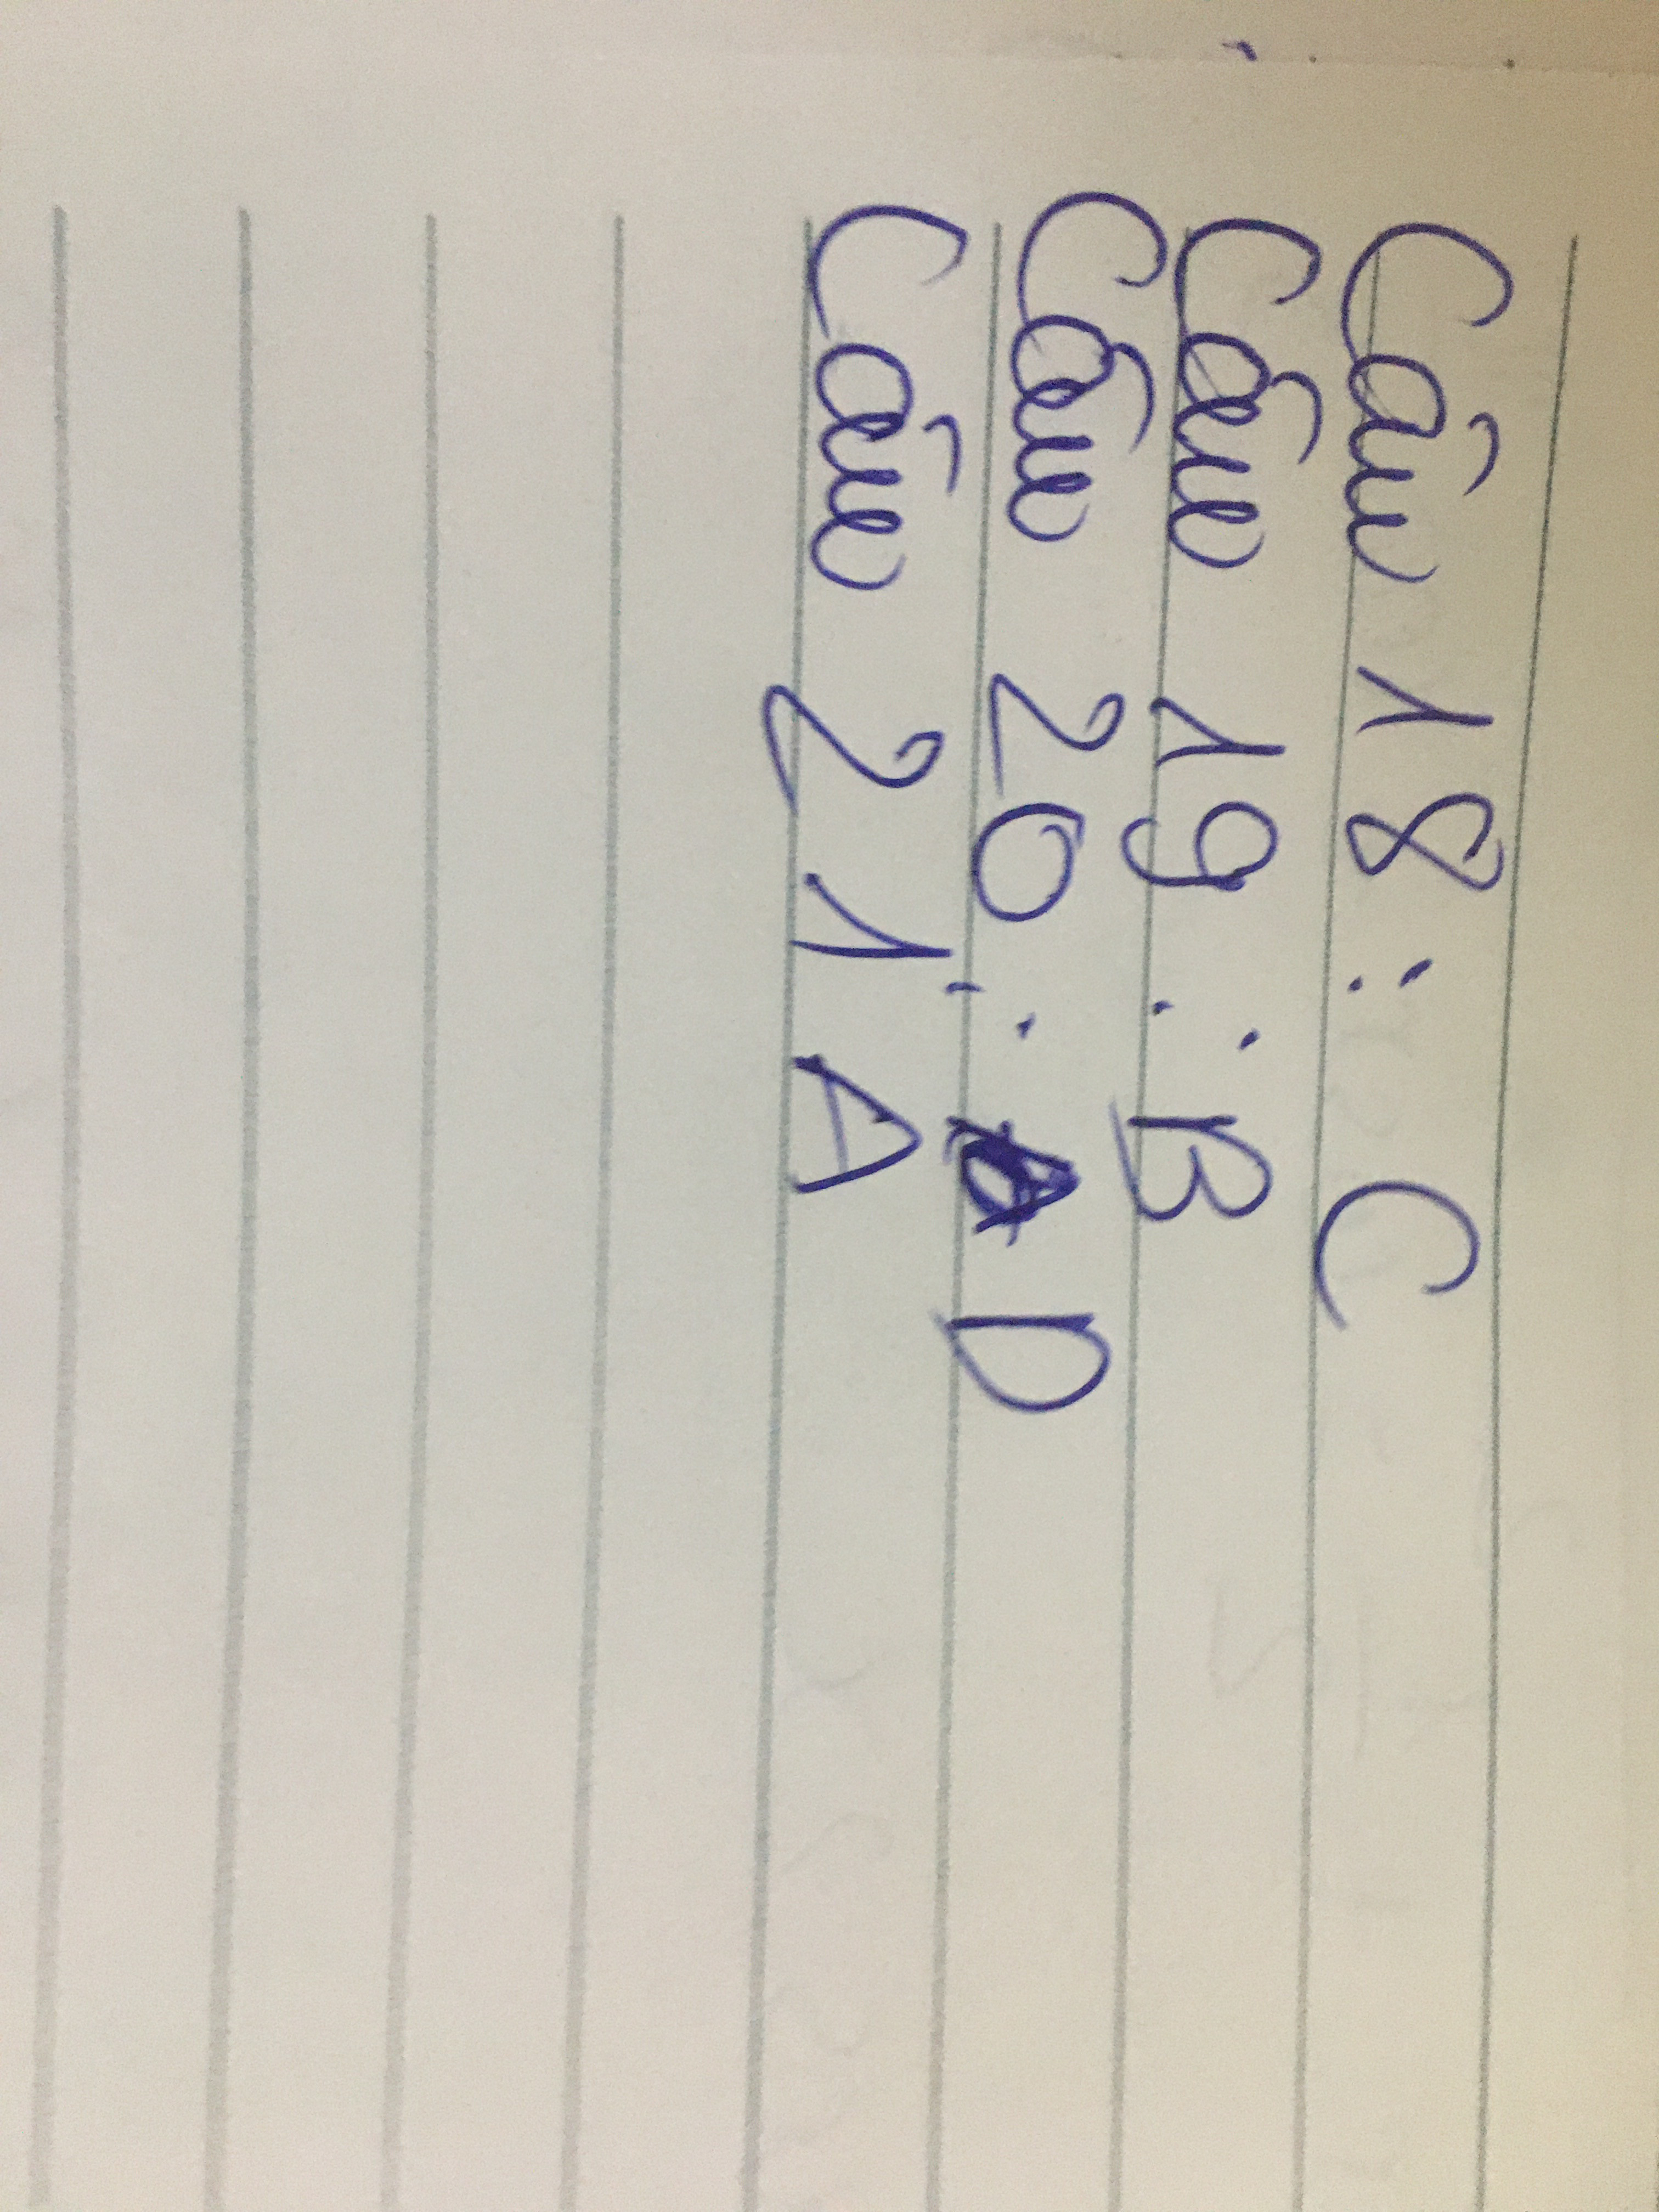 Câu 18 : C
Câu 19 : B
Câu 20 : D
Câu 21 : A